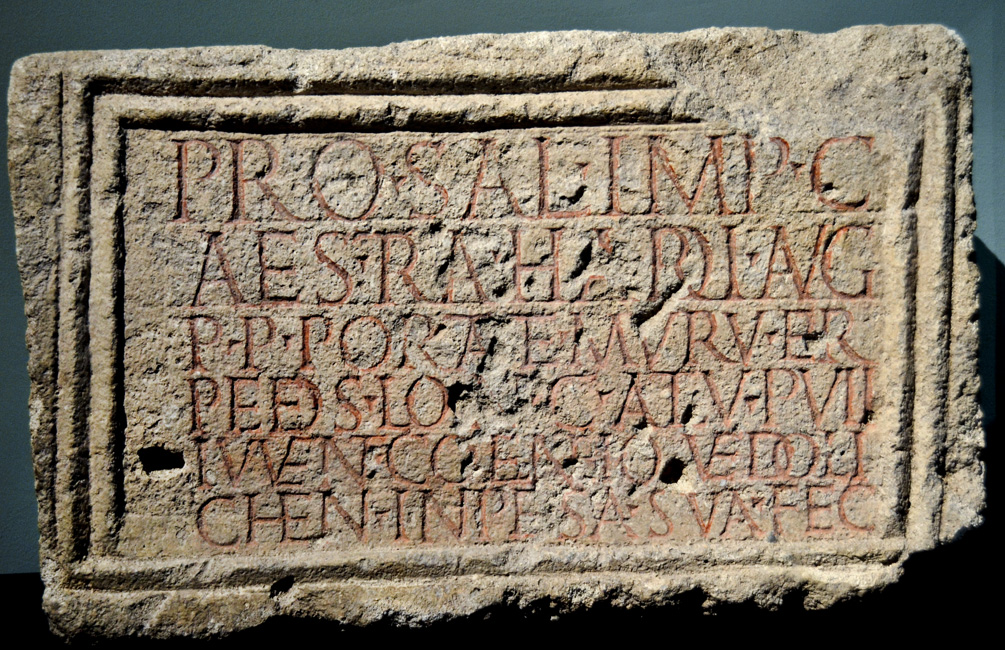 PRO·SAL·IMP·C
AES·TRA·HADRI·AVG
P·P·PORTA·E·MVRV·ER
PEED·S·LO C·ALTV·PVII
IVVEN·COLEN·IOVE·DOLI
CHEN·INPESA·SVA·FEC